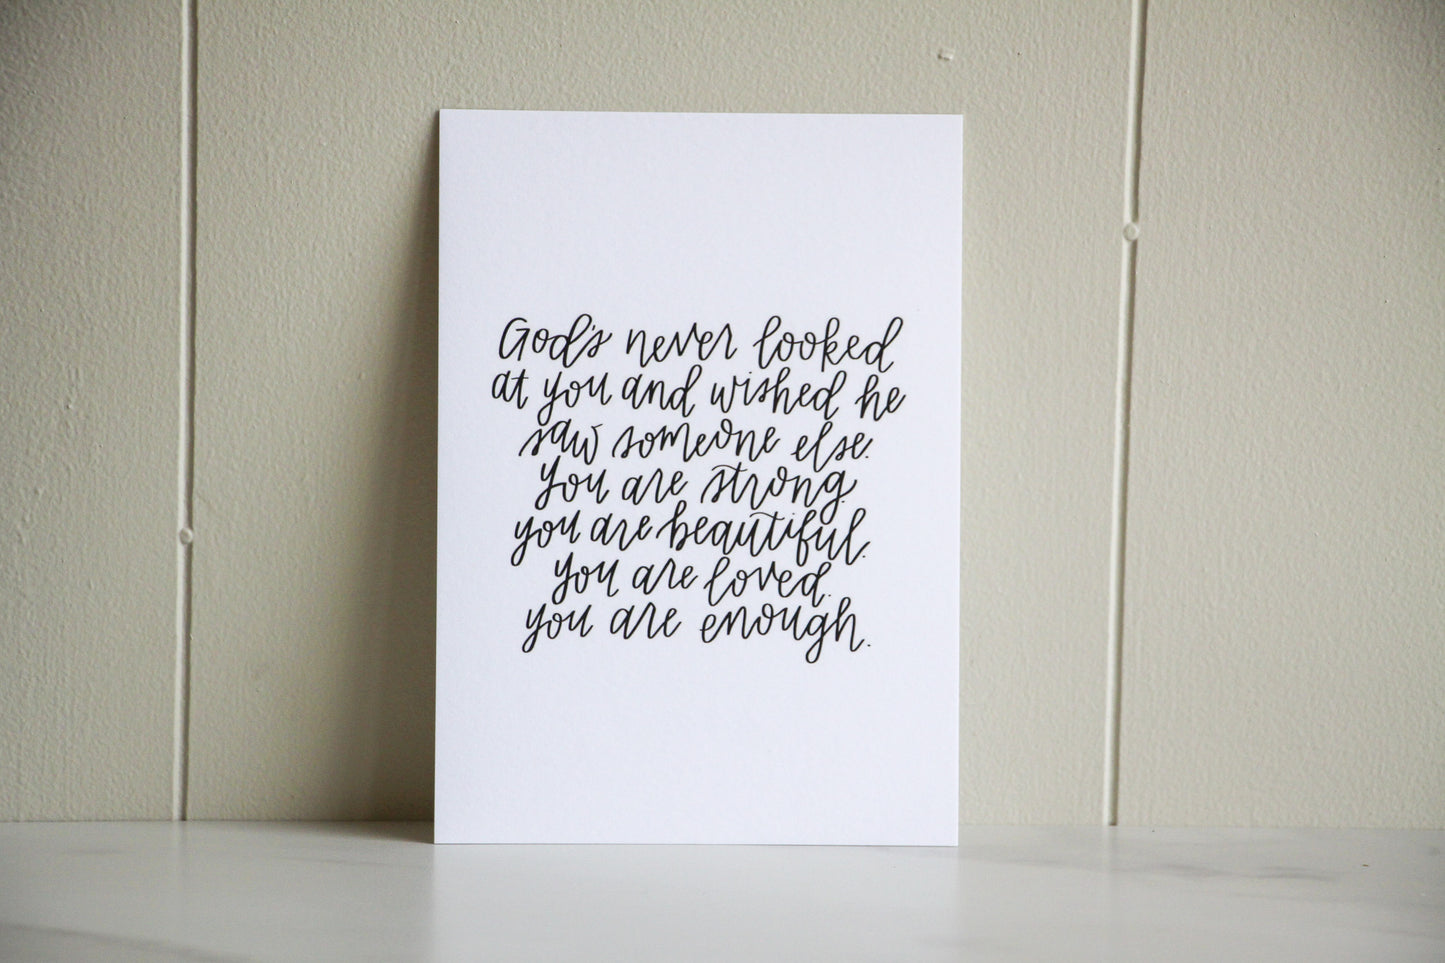 God's never looked
at you and wished he
saw someone else.
You are strong.
you are beautiful.
You are loved.
you are enough.